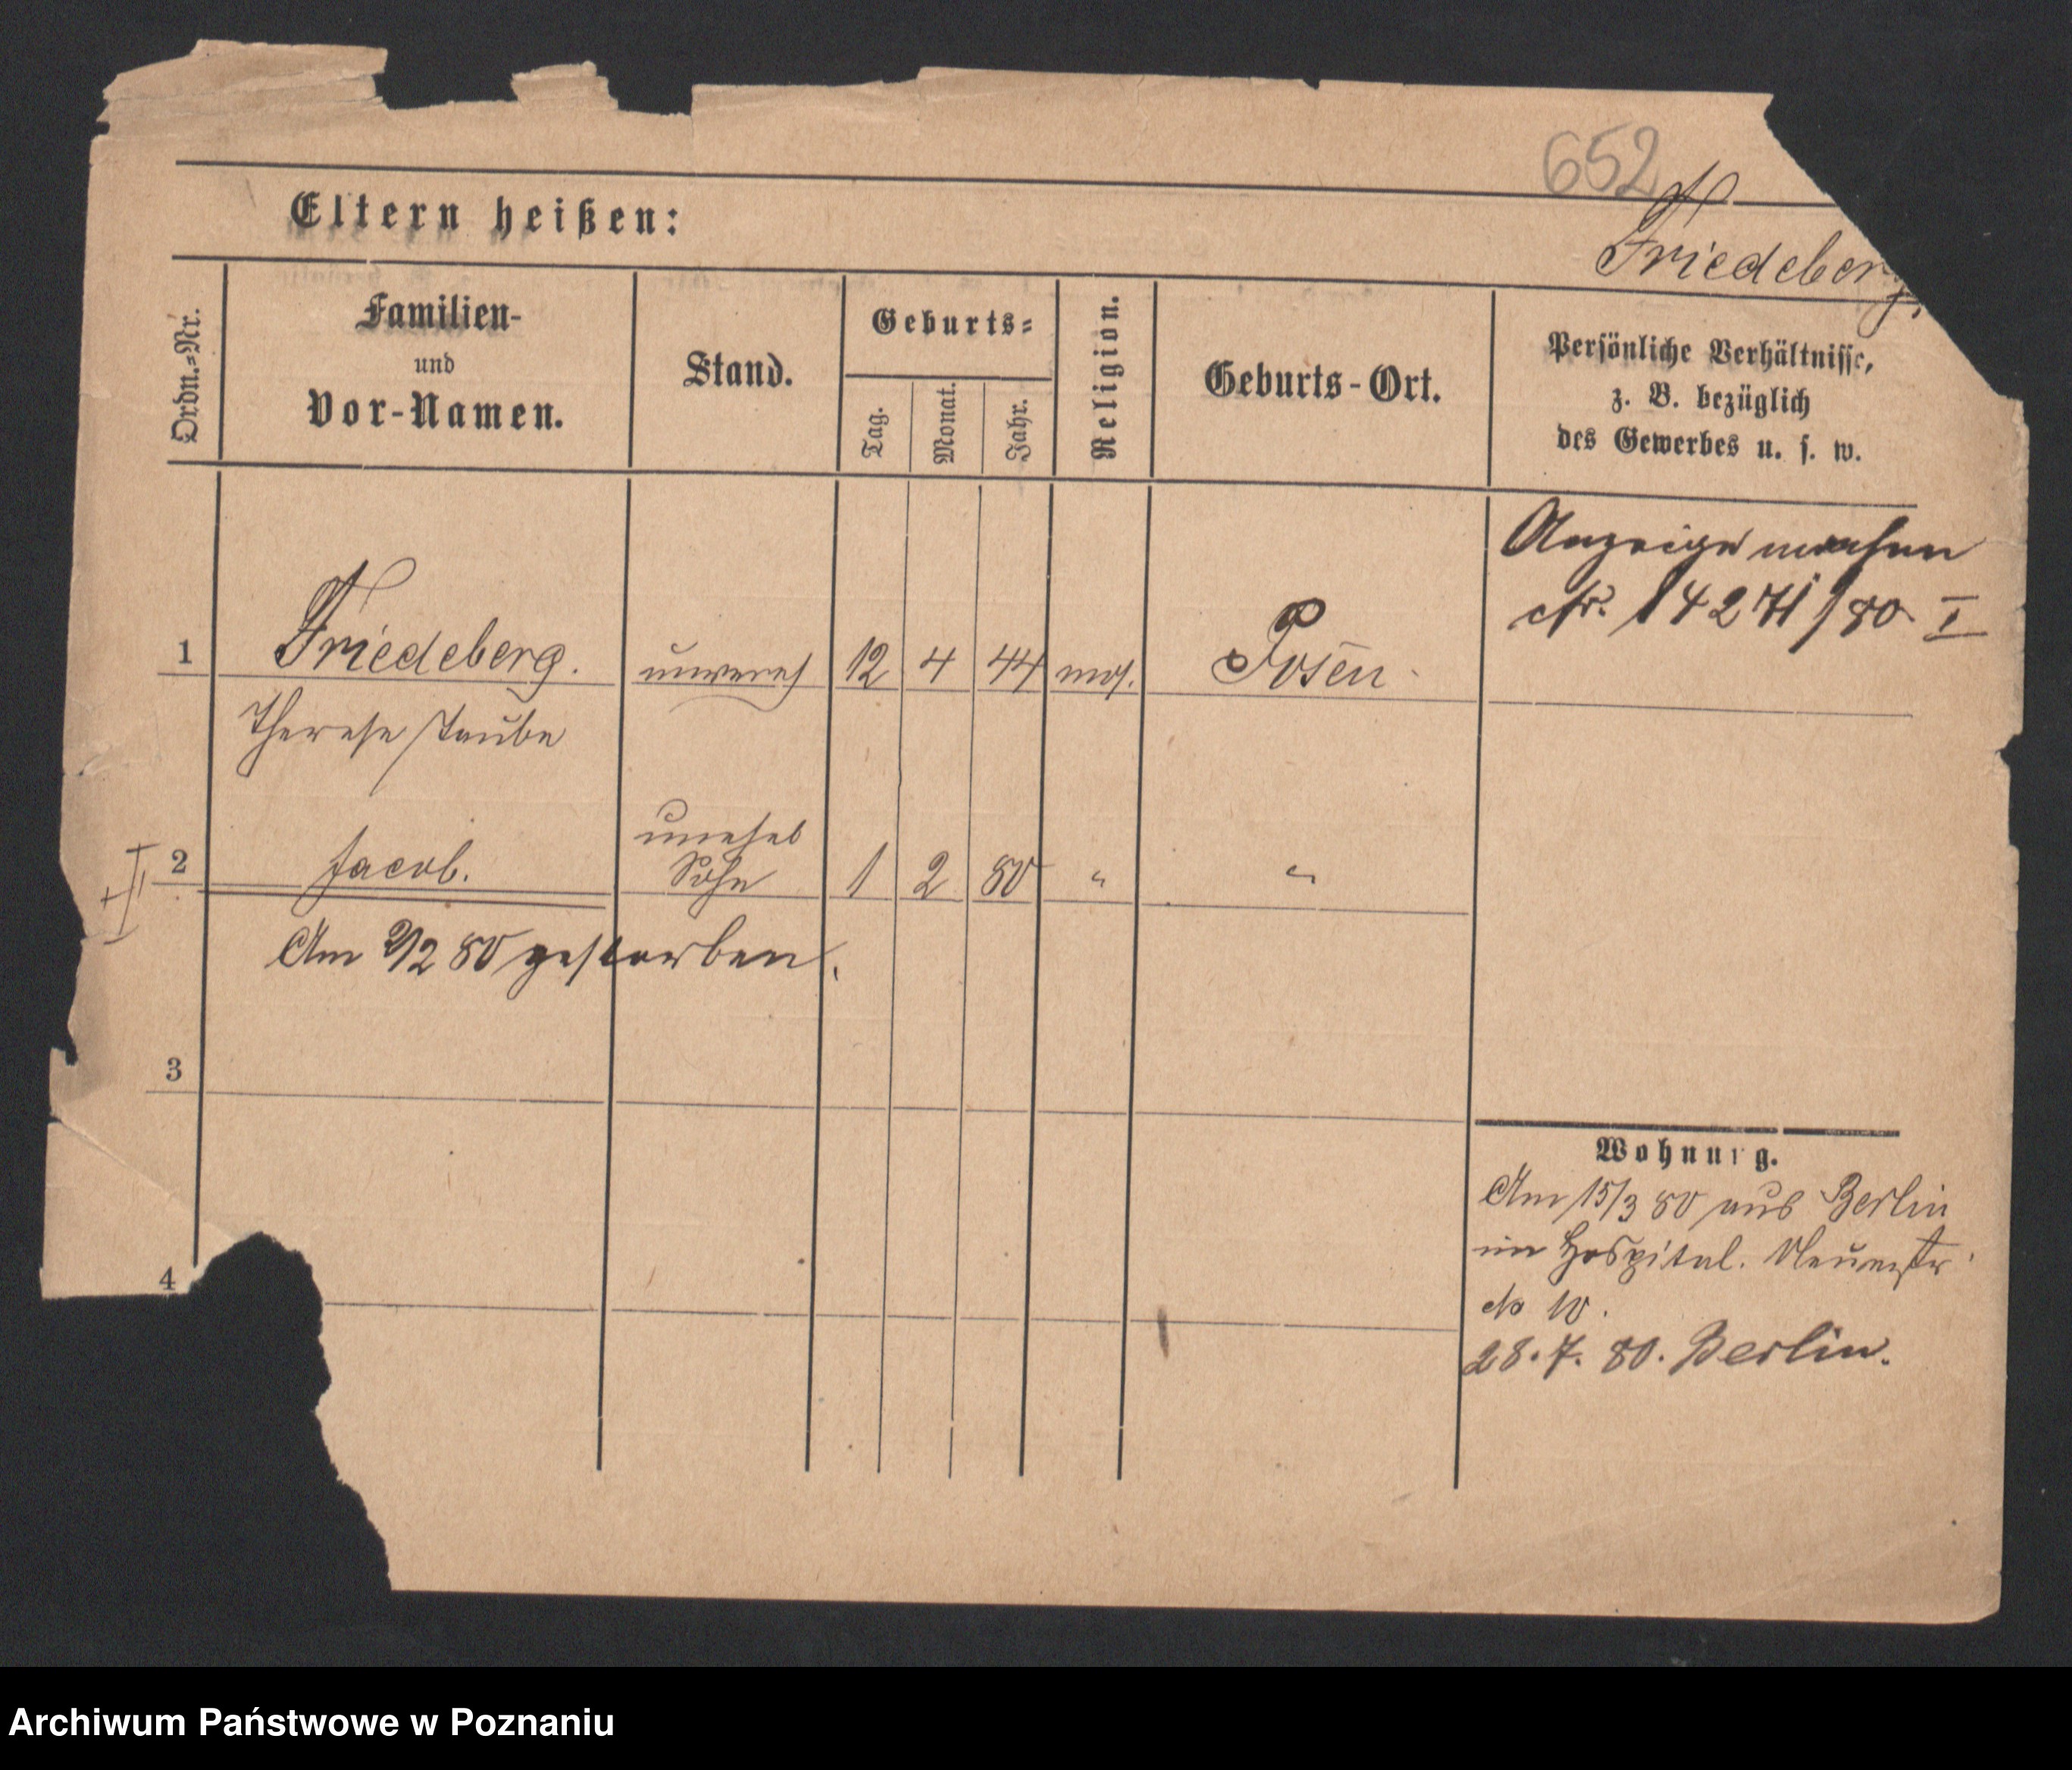 652
Eltern heißen:
Friedeberg.
Ordn.=Nr.
Familien-
und
Vor-Namen.
Stand.
Geburts=
Tag.
Monat.
Jahr.
Religion.
Geburts-Ort.
Persönliche Verhältnisse,
z. B. bezüglich
des Gewerbes u. s. w.
Anzeige machen
cfr. 14271/80 I
1 Friedeberg. unvereh 12 4 44 mos. Posen
Therese Taube
unehel
2 Jacob. Sohn 1 2 80 " "
II
Am 2/2 80 gestorben.
3
4
Wohnung.
Am 15/3 80 aus Berlin
im Hospital. Neuestr
No 10.
28. 7. 80. Berlin.
Archiwum Państwowe w Poznaniu